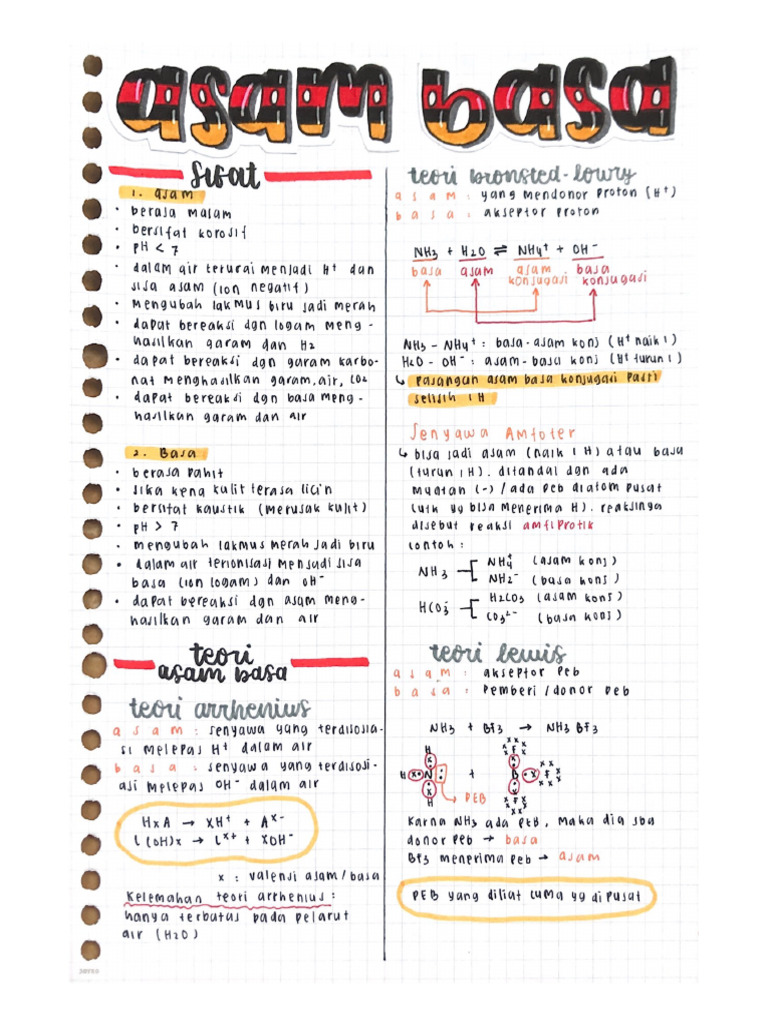 asam basa
sifat
1. asam
• berasa masam
• bersifat korosif
• pH < 7
• dalam air terurai menjadi H⁺ dan
sisa asam (ion negatif)
• mengubah lakmus biru jadi merah
• dapat bereaksi dgn logam meng-
hasilkan garam dan H2
• dapat bereaksi dgn garam karbo-
nat menghasilkan garam, air, CO2
• dapat bereaksi dgn basa meng-
hasilkan garam dan air
2. Basa
• berasa pahit
• jika kena kulit terasa licin
• bersifat kaustik (merusak kulit)
• pH > 7
• mengubah lakmus merah jadi biru
• dalam air terionisasi menjadi sisa
basa (ion logam) dan OH⁻
• dapat bereaksi dgn asam meng-
hasilkan garam dan air
teori
asam basa
teori arrhenius
asam : senyawa yang terdisosia-
si melepas H⁺ dalam air
basa : senyawa yang terdisosi-
asi melepas OH⁻ dalam air
HxA → XH⁺ + Aˣ⁻
L(OH)x → Lˣ⁺ + XOH⁻
x : valensi asam/basa
Kelemahan teori arrhenius :
hanya terbatas pada pelarut
air (H2O)
teori bronsted-lowry
asam : yang mendonor proton (H⁺)
basa : akseptor proton
NH3 + H2O ⇌ NH4⁺ + OH⁻
basa asam asam basa
konjugasi konjugasi
NH3 - NH4⁺ : basa-asam konj (H⁺ naik 1)
H2O - OH⁻ : asam-basa konj (H⁺ turun 1)
↳ pasangan asam basa konjugasi pasti
selisih 1 H
Senyawa Amfoter
↳ bisa jadi asam (naik 1 H) atau basa
(turun 1 H). ditandai dgn ada
muatan (-) / ada PEB diatom pusat
(utk yg bisa menerima H). reaksinya
disebut reaksi amfiprotik
contoh :
NH3 NH4⁺ (asam konj)
NH2⁻ (basa konj)
HCO3⁻ H2CO3 (asam konj)
CO3²⁻ (basa konj)
teori lewis
asam : akseptor PEB
basa : pemberi/donor PEB
NH3 + BF3 → NH3BF3
H F
H N + B F
H F
PEB
Karna NH3 ada PEB, maka dia sba
donor PEB → basa
BF3 menerima PEB → asam
PEB yang diliat cuma yg di pusat